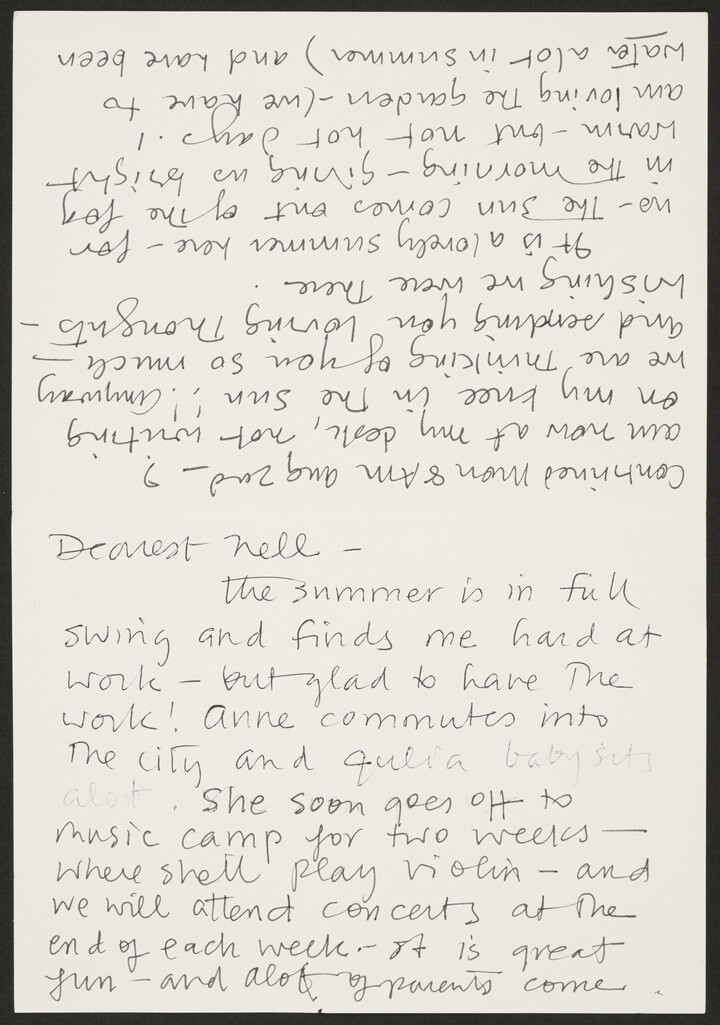 Dearest Nell –
the summer is in full
swing and finds me hard at
work – but glad to have The
work! Anne commutes into
The city and Julia babysits
alot. She soon goes off to
music camp for two weeks –
where she'll play violin – and
we will attend concerts at The
end of each week – It is great
fun – and alot of parents come.
Continued Mon 8 AM Aug 2nd – I
am now at my desk, not writing
on my knee in The Sun!! Anyway
we are Thinking of you so much –
and sending you loving Thoughts –
Wishing we were There.
It is a lovely summer here – for
us – The Sun comes out of The fog
in The morning – giving us bright
warm – but not hot days!.
am loving The garden – (we have to
water alot in summer) and have been